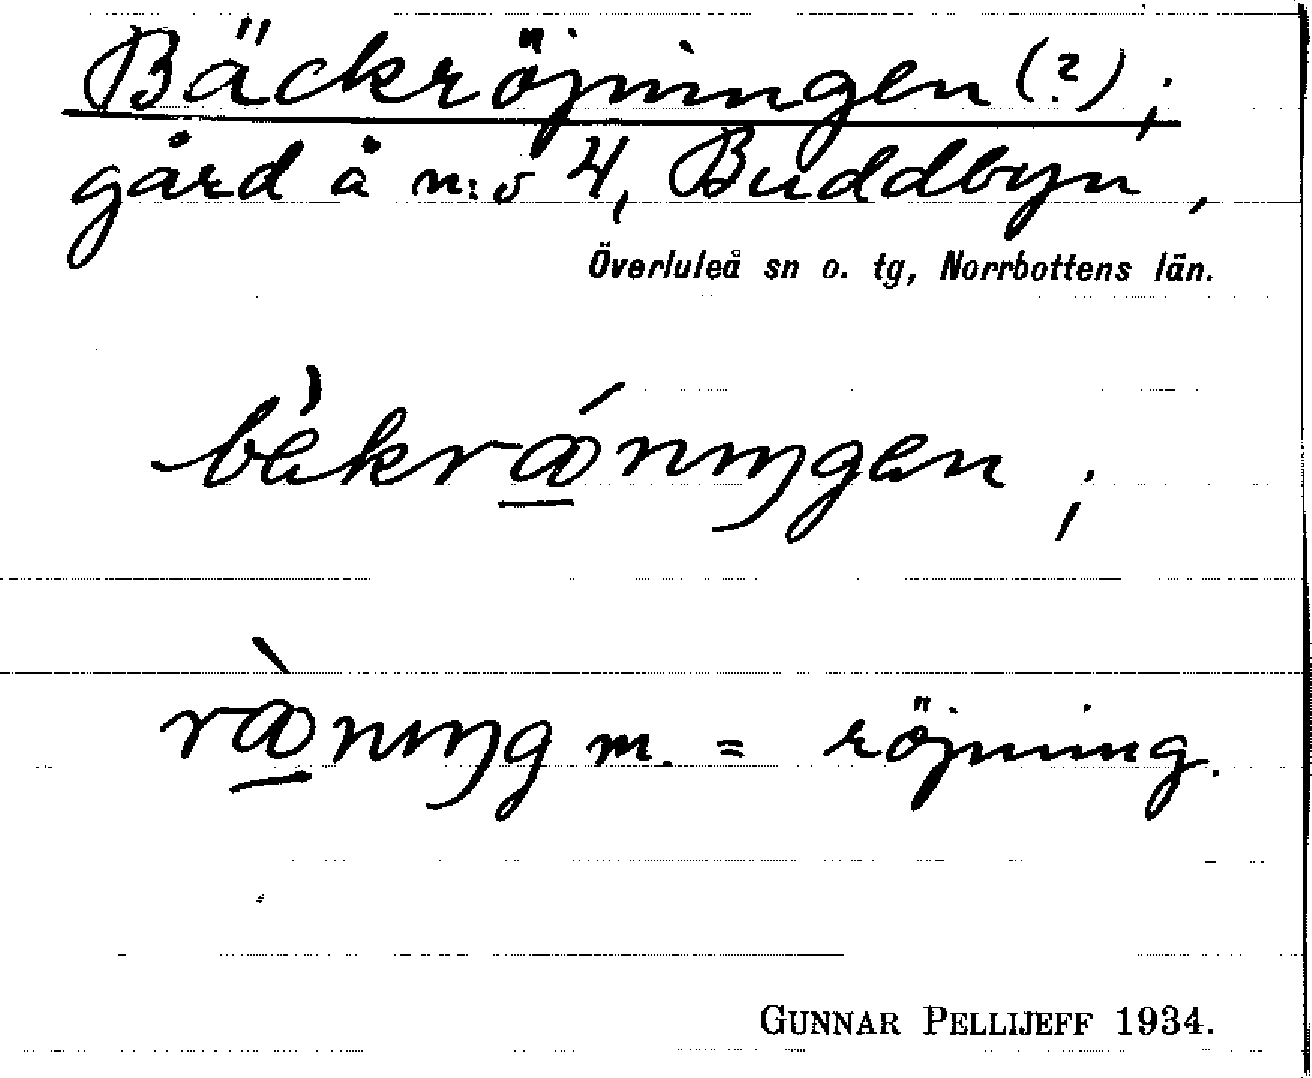 Bäckröjningen (?);
gård å n:o 4, Buddbyn,
Överluleå sn o. tg, Norrbottens län.
röjning.
m. =
GUNNAR PELLIJEFF 1934.